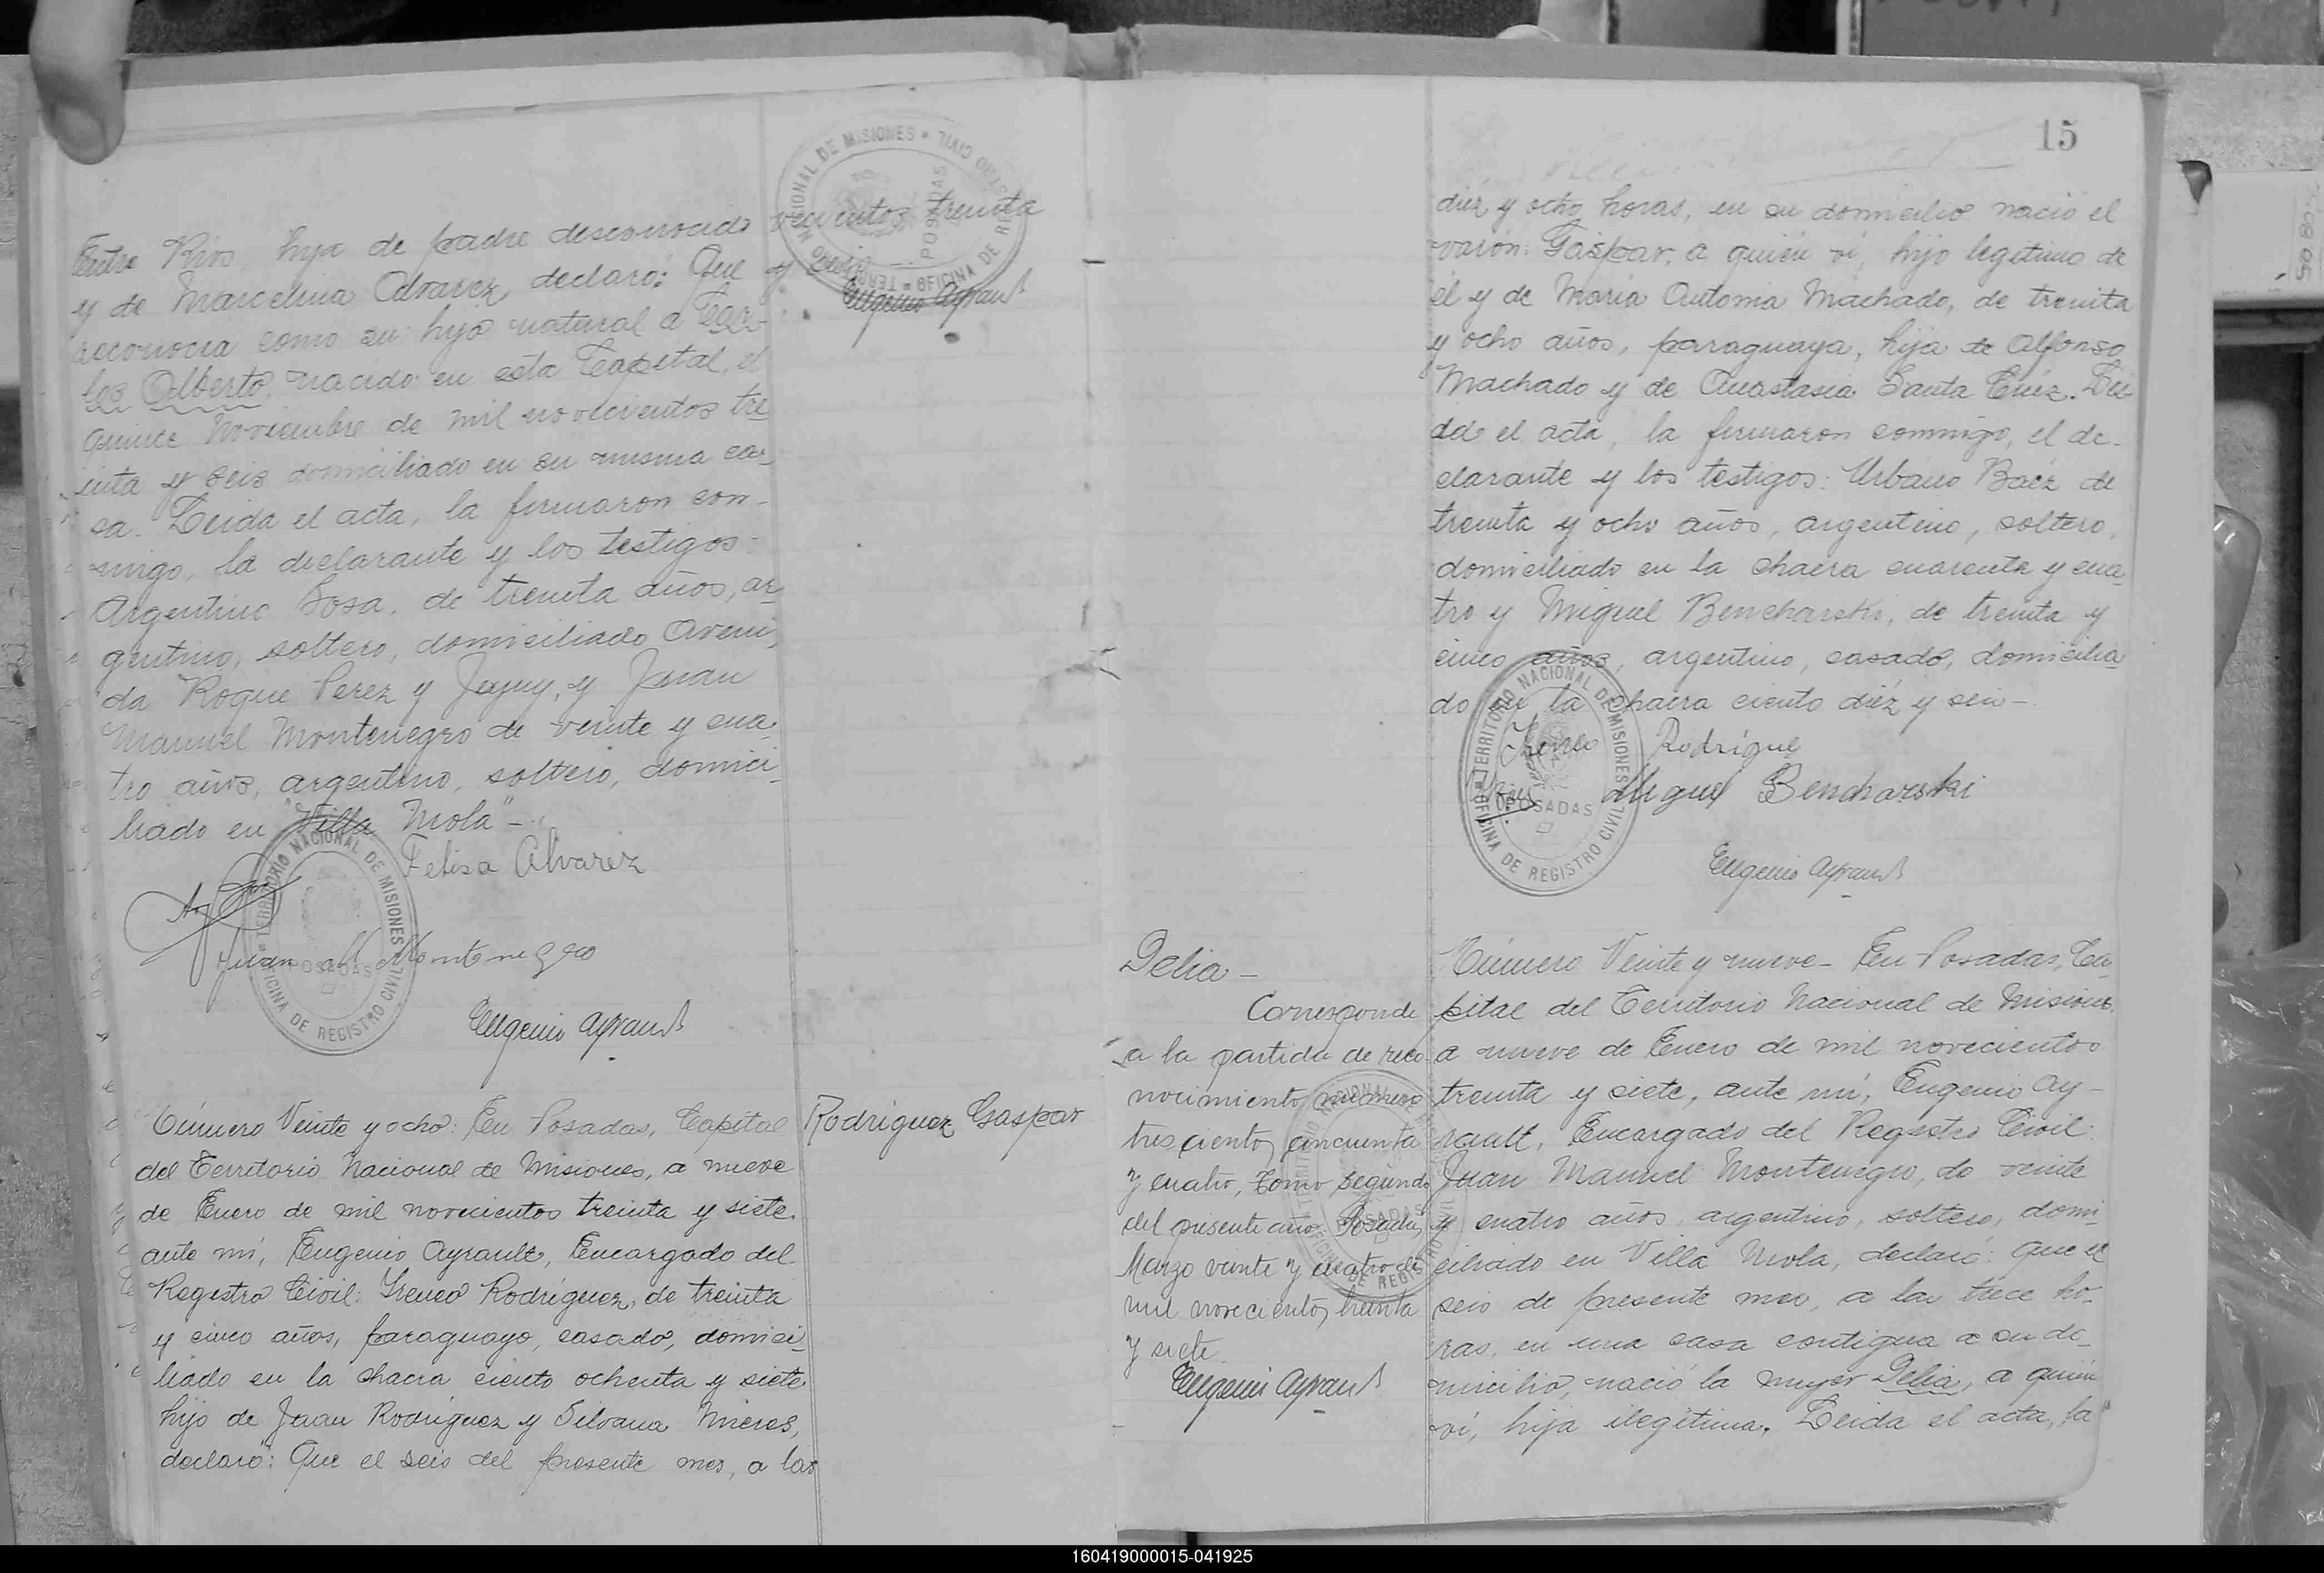 Entre Rios, hija de padre desconocido
y de Marcelina Alvarez, declaró: Que
reconocia como su hijo natural a Car-
los Alberto, nacido en esta Capital, el
quince Noviembre de mil novecientos tre
inta y seis domiciliado en su misma ca-
sa. Leida el acta, la firmaron con-
migo, la declarante y los testigos:
Argentino Sosa, de treinta años, ar
gentino, soltero, domiciliado Aveni
da Roque Perez y Jujuy, y Juan
Manuel Montenegro de veinte y cua
tro años, argentino, soltero, domici
liado en "Villa Mola"-
Felisa Alvarez
Juan M Montenegro
Eugenio Ayrault
TERRITORIO NACIONAL DE MISIONES
POSADAS
OFICINA DE REGISTRO CIVIL
vecientos treinta
y
Eugenio Ayrault
TERRITORIO NACIONAL DE MISIONES
POSADAS
OFICINA DE REGISTRO CIVIL
Rodríguez Gaspar
Número Veinte y ocho: En Posadas, Capital
del Territorio Nacional de Misiones, a nueve
de Enero de mil novecientos treinta y siete.
ante mí, Eugenio Ayrault, Encargado del
Registro Civil: Ireneo Rodríguez, de treinta
y cinco años, paraguayo, casado, domici-
liado en la chacra ciento ochenta y siete
hijo de Juan Rodríguez y Silvana Mieres,
declaró: Que el seis del presente mes, a las
15
diéz y ocho horas, en su domicilio nació el
varón: Gaspar, a quién ví, hijo legitimo de
él y de María Antonia Machado, de treinta
y ocho años, paraguaya, hija de Alfonso
Machado y de Anastasia Santa Cruz. Lei-
da el acta, la firmaron conmigo, el de-
clarante y los testigos: Urbano Baéz de
treinta y ocho años, argentino, soltero,
domiciliado en la chacra cuarenta y cua
tro y Miguel Bencharski, de treinta y
cinco años, argentino, casado, domicilia
do en la chacra ciento diéz y seis-
Ireneo Rodrígue
Miguel Bencharski
Eugenio Ayrault
TERRITORIO NACIONAL DE MISIONES
POSADAS
OFICINA DE REGISTRO CIVIL
Delia-
Corresponde
a la partida de reco
nocimiento número
trescientos cincuenta
y cuatro, tomo segundo
del presente año. Posadas,
Marzo veinte y cuatro de
mil novecientos treinta
y siete.
Eugenio Ayrault
Número Veinte y nueve- En Posadas, Ca-
pital del Territorio Nacional de Misiones
a nueve de Enero de mil novecientos
treinta y siete, ante mí, Eugenio Ay-
rault, Encargado del Registro Civil:
Juan Manuel Montenegro, de veinte
y cuatro años, argentino, soltero, domi-
ciliado en Villa Mola, declaró: Que el
seis de presente mes, a las trece ho-
ras, en una casa contigua a su do-
micilio, nació la mujer Delia, a quién
ví, hija ilegítima. Leida el acta, la
160419000015-041925